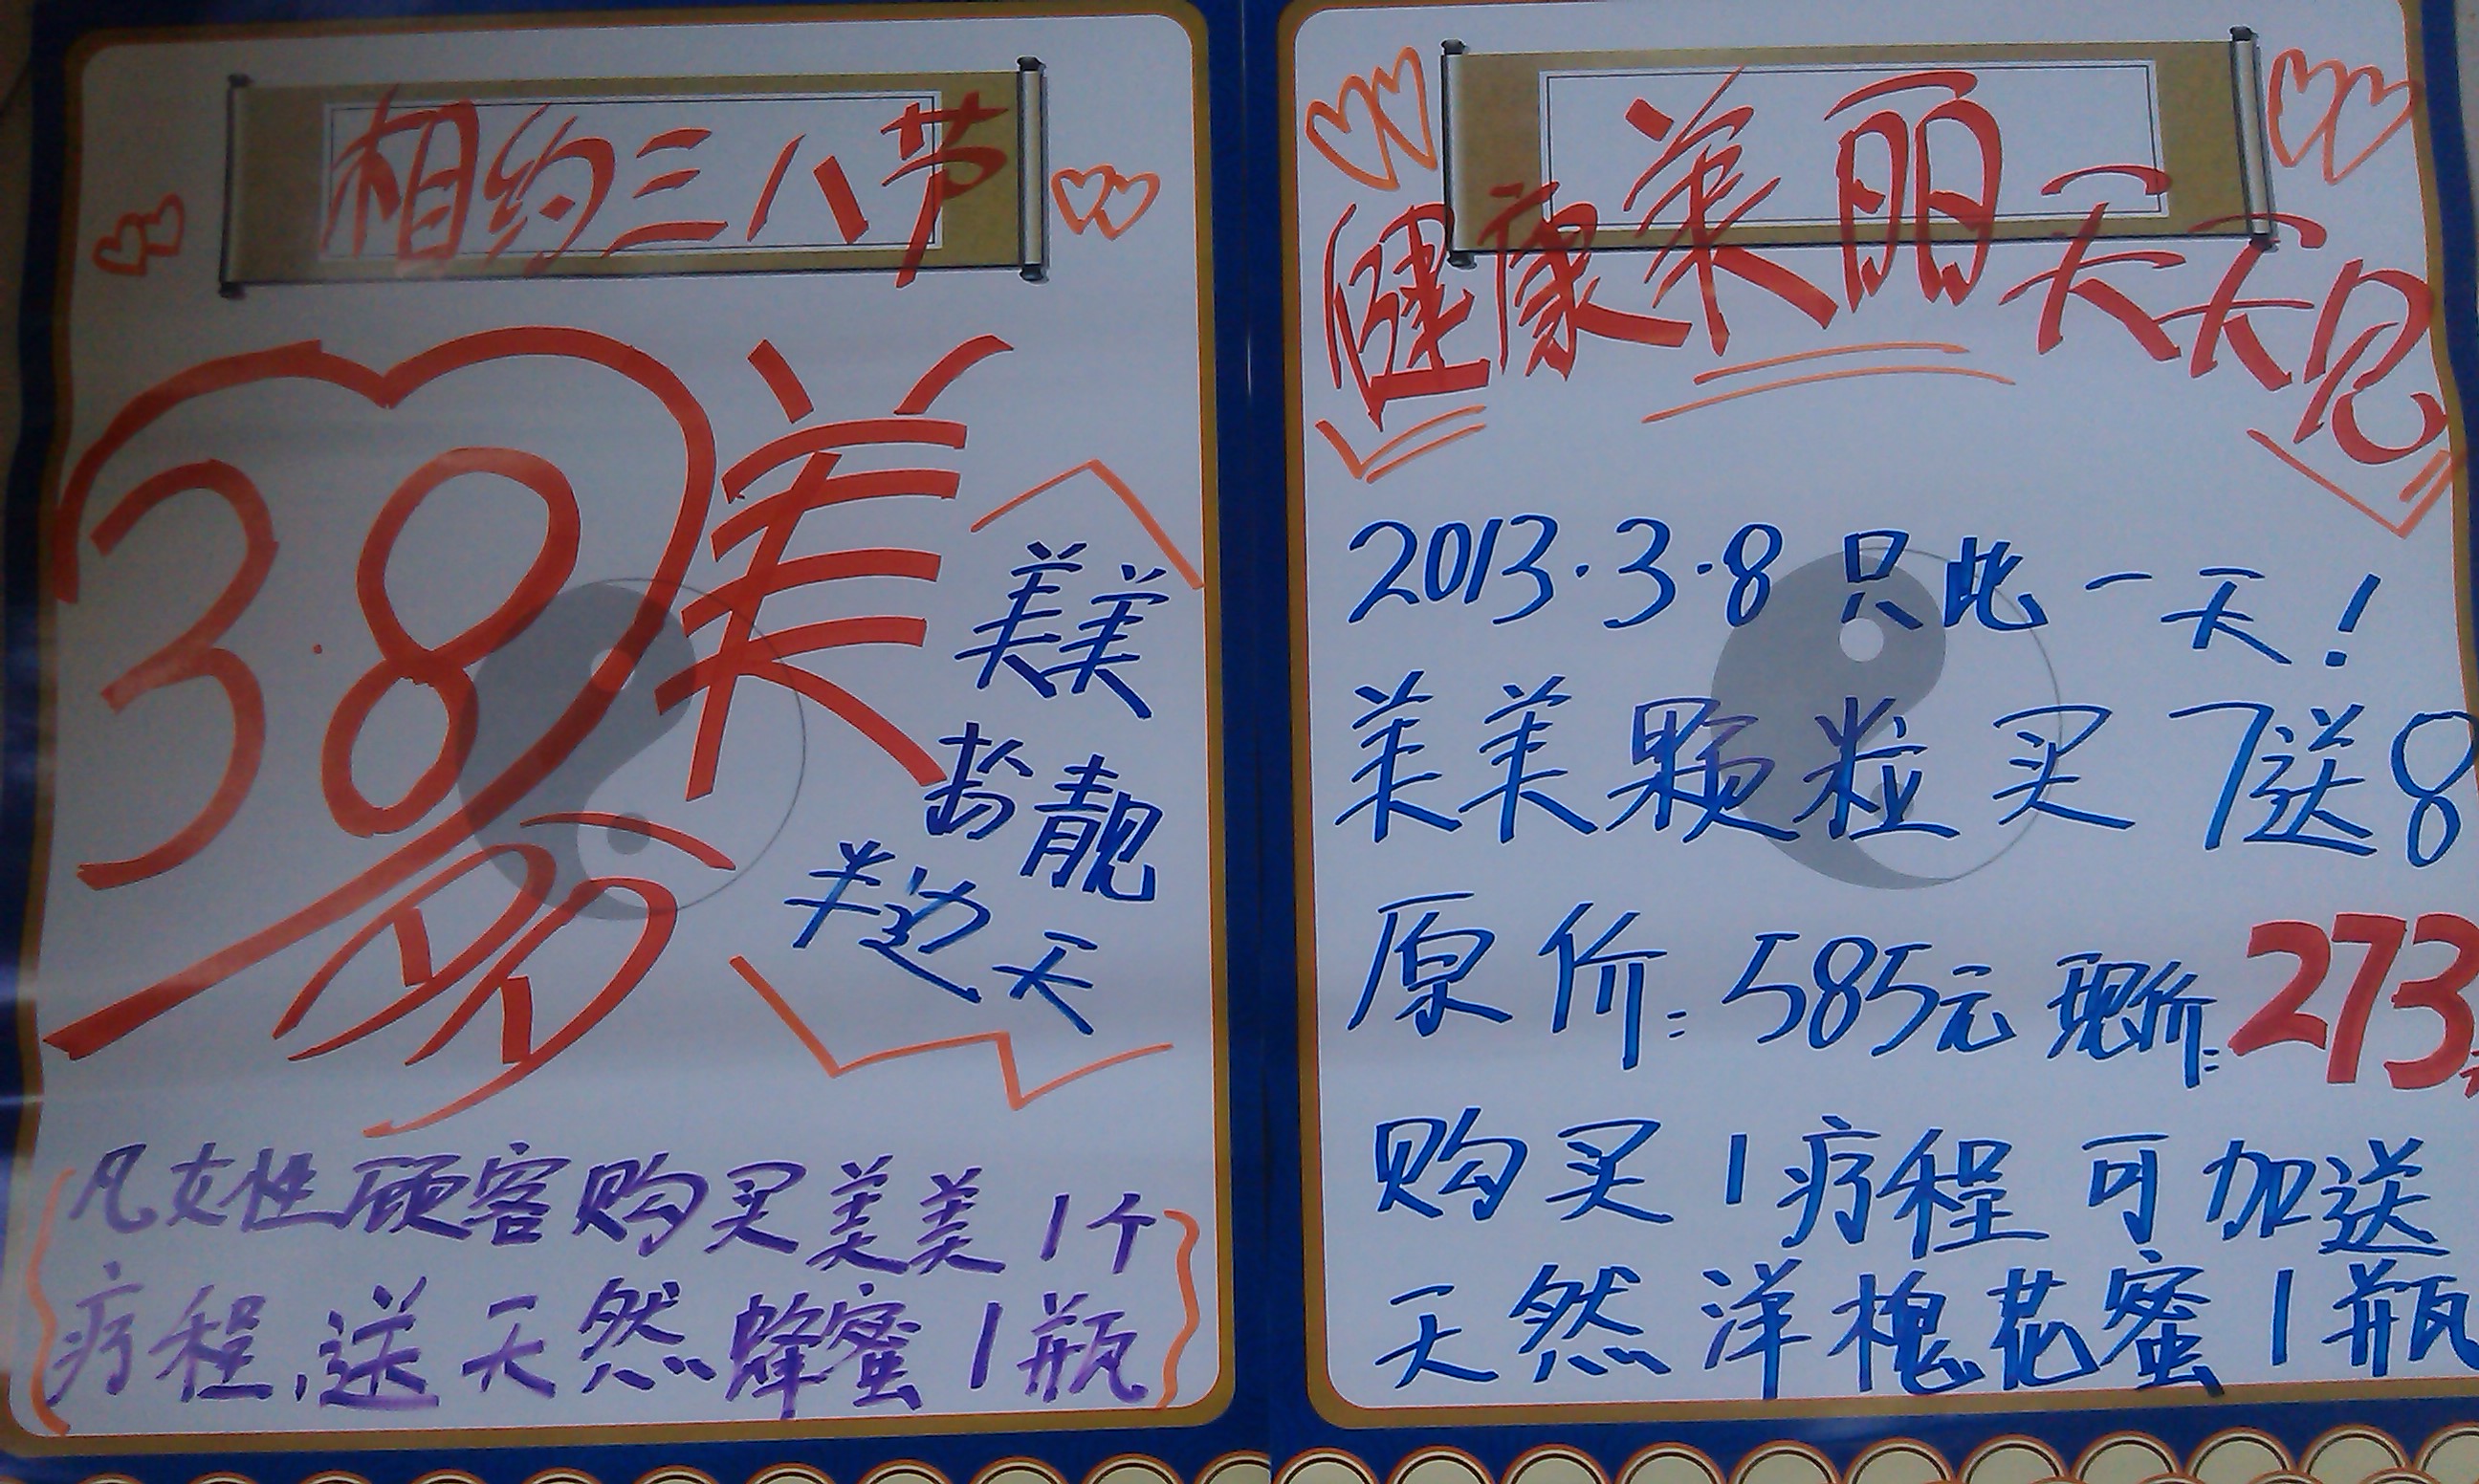 相约三八节
3.8美
丽
美美
扮靓
半边天
凡女性顾客购买美美1个
疗程,送天然蜂蜜1瓶
健康美丽天天见
2013.3.8只此一天!
美美颗粒买7送8
原价:585元 现价:273
购买1疗程可加送
天然洋槐花蜜1瓶